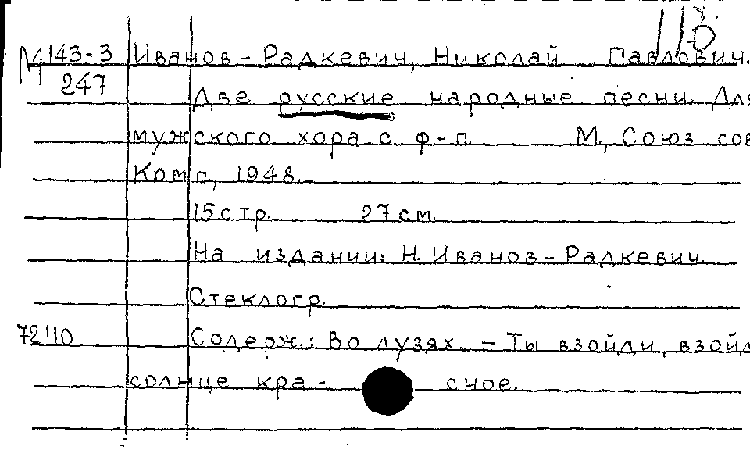 М 143-3 Иванов-Радкевич, Николай Павлович.
247
Две русские народные песни. Для
мужского хора с ф-п. М., Союз сов
Комп., 1948.
15 стр. 27 см.
На издании: Н. Иванов-Радкевич.
Стеклогр.
72110 Содерж.: Во лузях. – Ты взойди, взойд
солнце кра- сное.